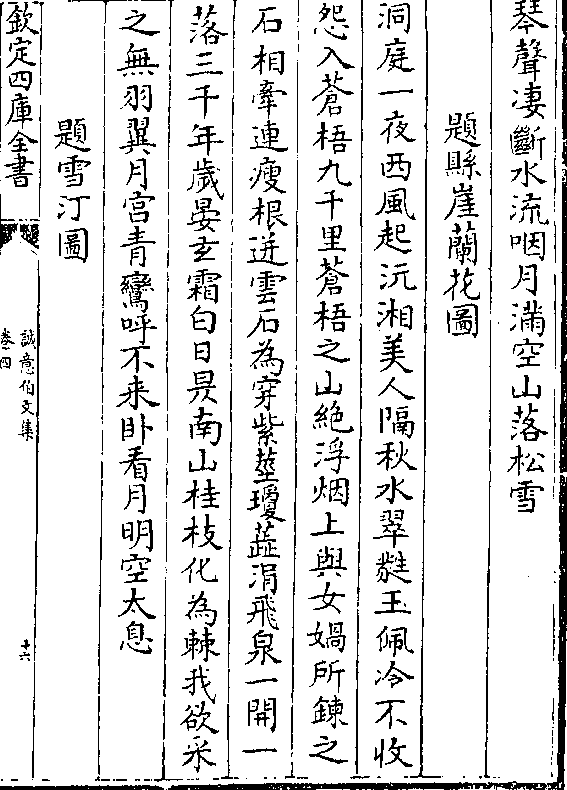 琴聲凄斷水流咽月滿空山落松雪
題縣崖蘭花圖
洞庭一夜西風起沅湘美人隔秋水翠㲯玉佩冷不收
怨入蒼梧九千里蒼梧之山絶浮烟上與女媧所鍊之
石相牽連瘦根迸雲石為穿紫莖瓊蕋涓飛泉一開一
落三千年歲晏玄霜白日昃南山桂枝化為棘我欲采
之無羽翼月宫青鸞呼不来卧看月明空太息
題雪汀圖
欽定四庫全書
誠意伯文集
卷四
十六